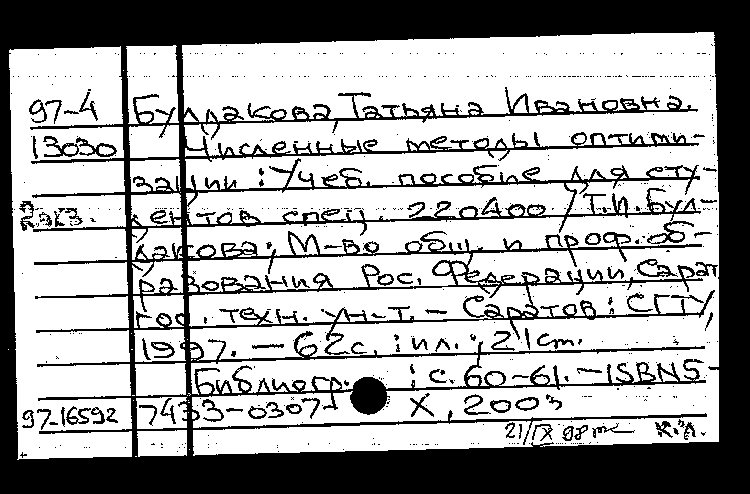 97-4 Булдакова, Татьяна Ивановна.
13030 Численные методы оптими-
зации : Учеб. пособие для сту-
2 экз. дентов спец. 220400 / Т.И. Бул-
дакова; М-во общ. и проф. об-
разования Рос. Федерации, Сарат
гос. техн. ун-т. – Саратов : СГТУ,
1997. – 62 с. : ил. ; 21 cm.
Библиогр. : с. 60-61. – ISBN 5-
97-16592 7433-0307- X, 200 э
21/IX 98 К.Л.